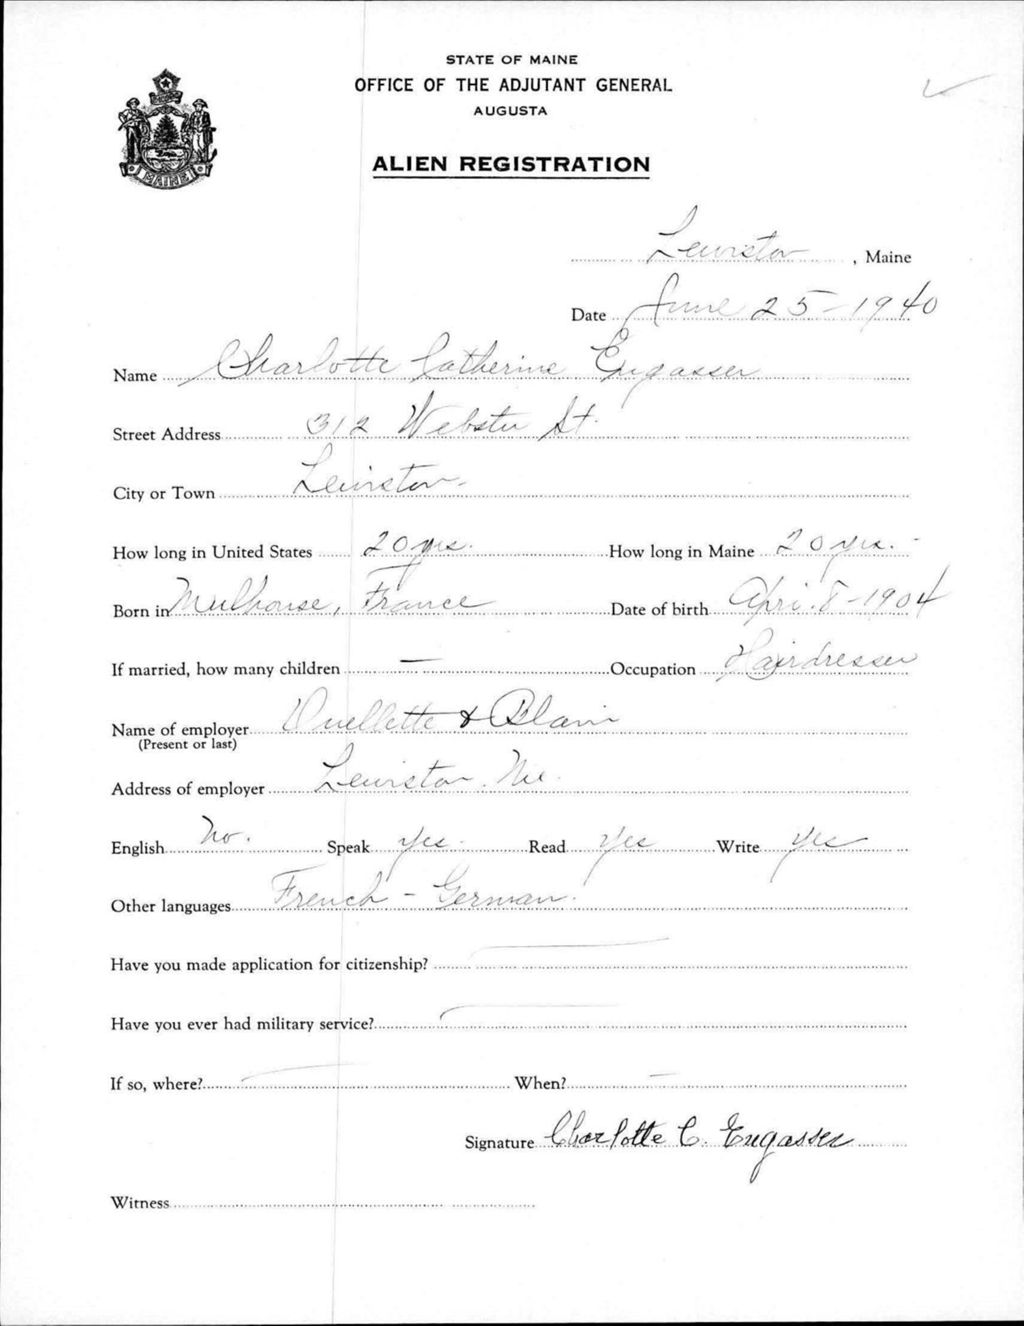 STATE OF MAINE
OFFICE OF THE ADJUTANT GENERAL
AUGUSTA
MAINE
ALIEN REGISTRATION
Lewiston, Maine
Date June 25-1940
Name Charlotte Catherine Engasser
Street Address 312 Webster St.
City or Town Lewiston
How long in United States 20 yrs. How long in Maine 20 yrs.
Born in Mulhouse, France Date of birth Apri. 8-1904
If married, how many children — Occupation Hairdresser
Name of employer Ouellette & Blain
(Present or last)
Address of employer Lewiston, Me.
English No. Speak Yes. Read Yes Write Yes
Other languages French - German.
Have you made application for citizenship? —
Have you ever had military service? —
If so, where? — When? —
Signature Charlotte C. Engasser
Witness